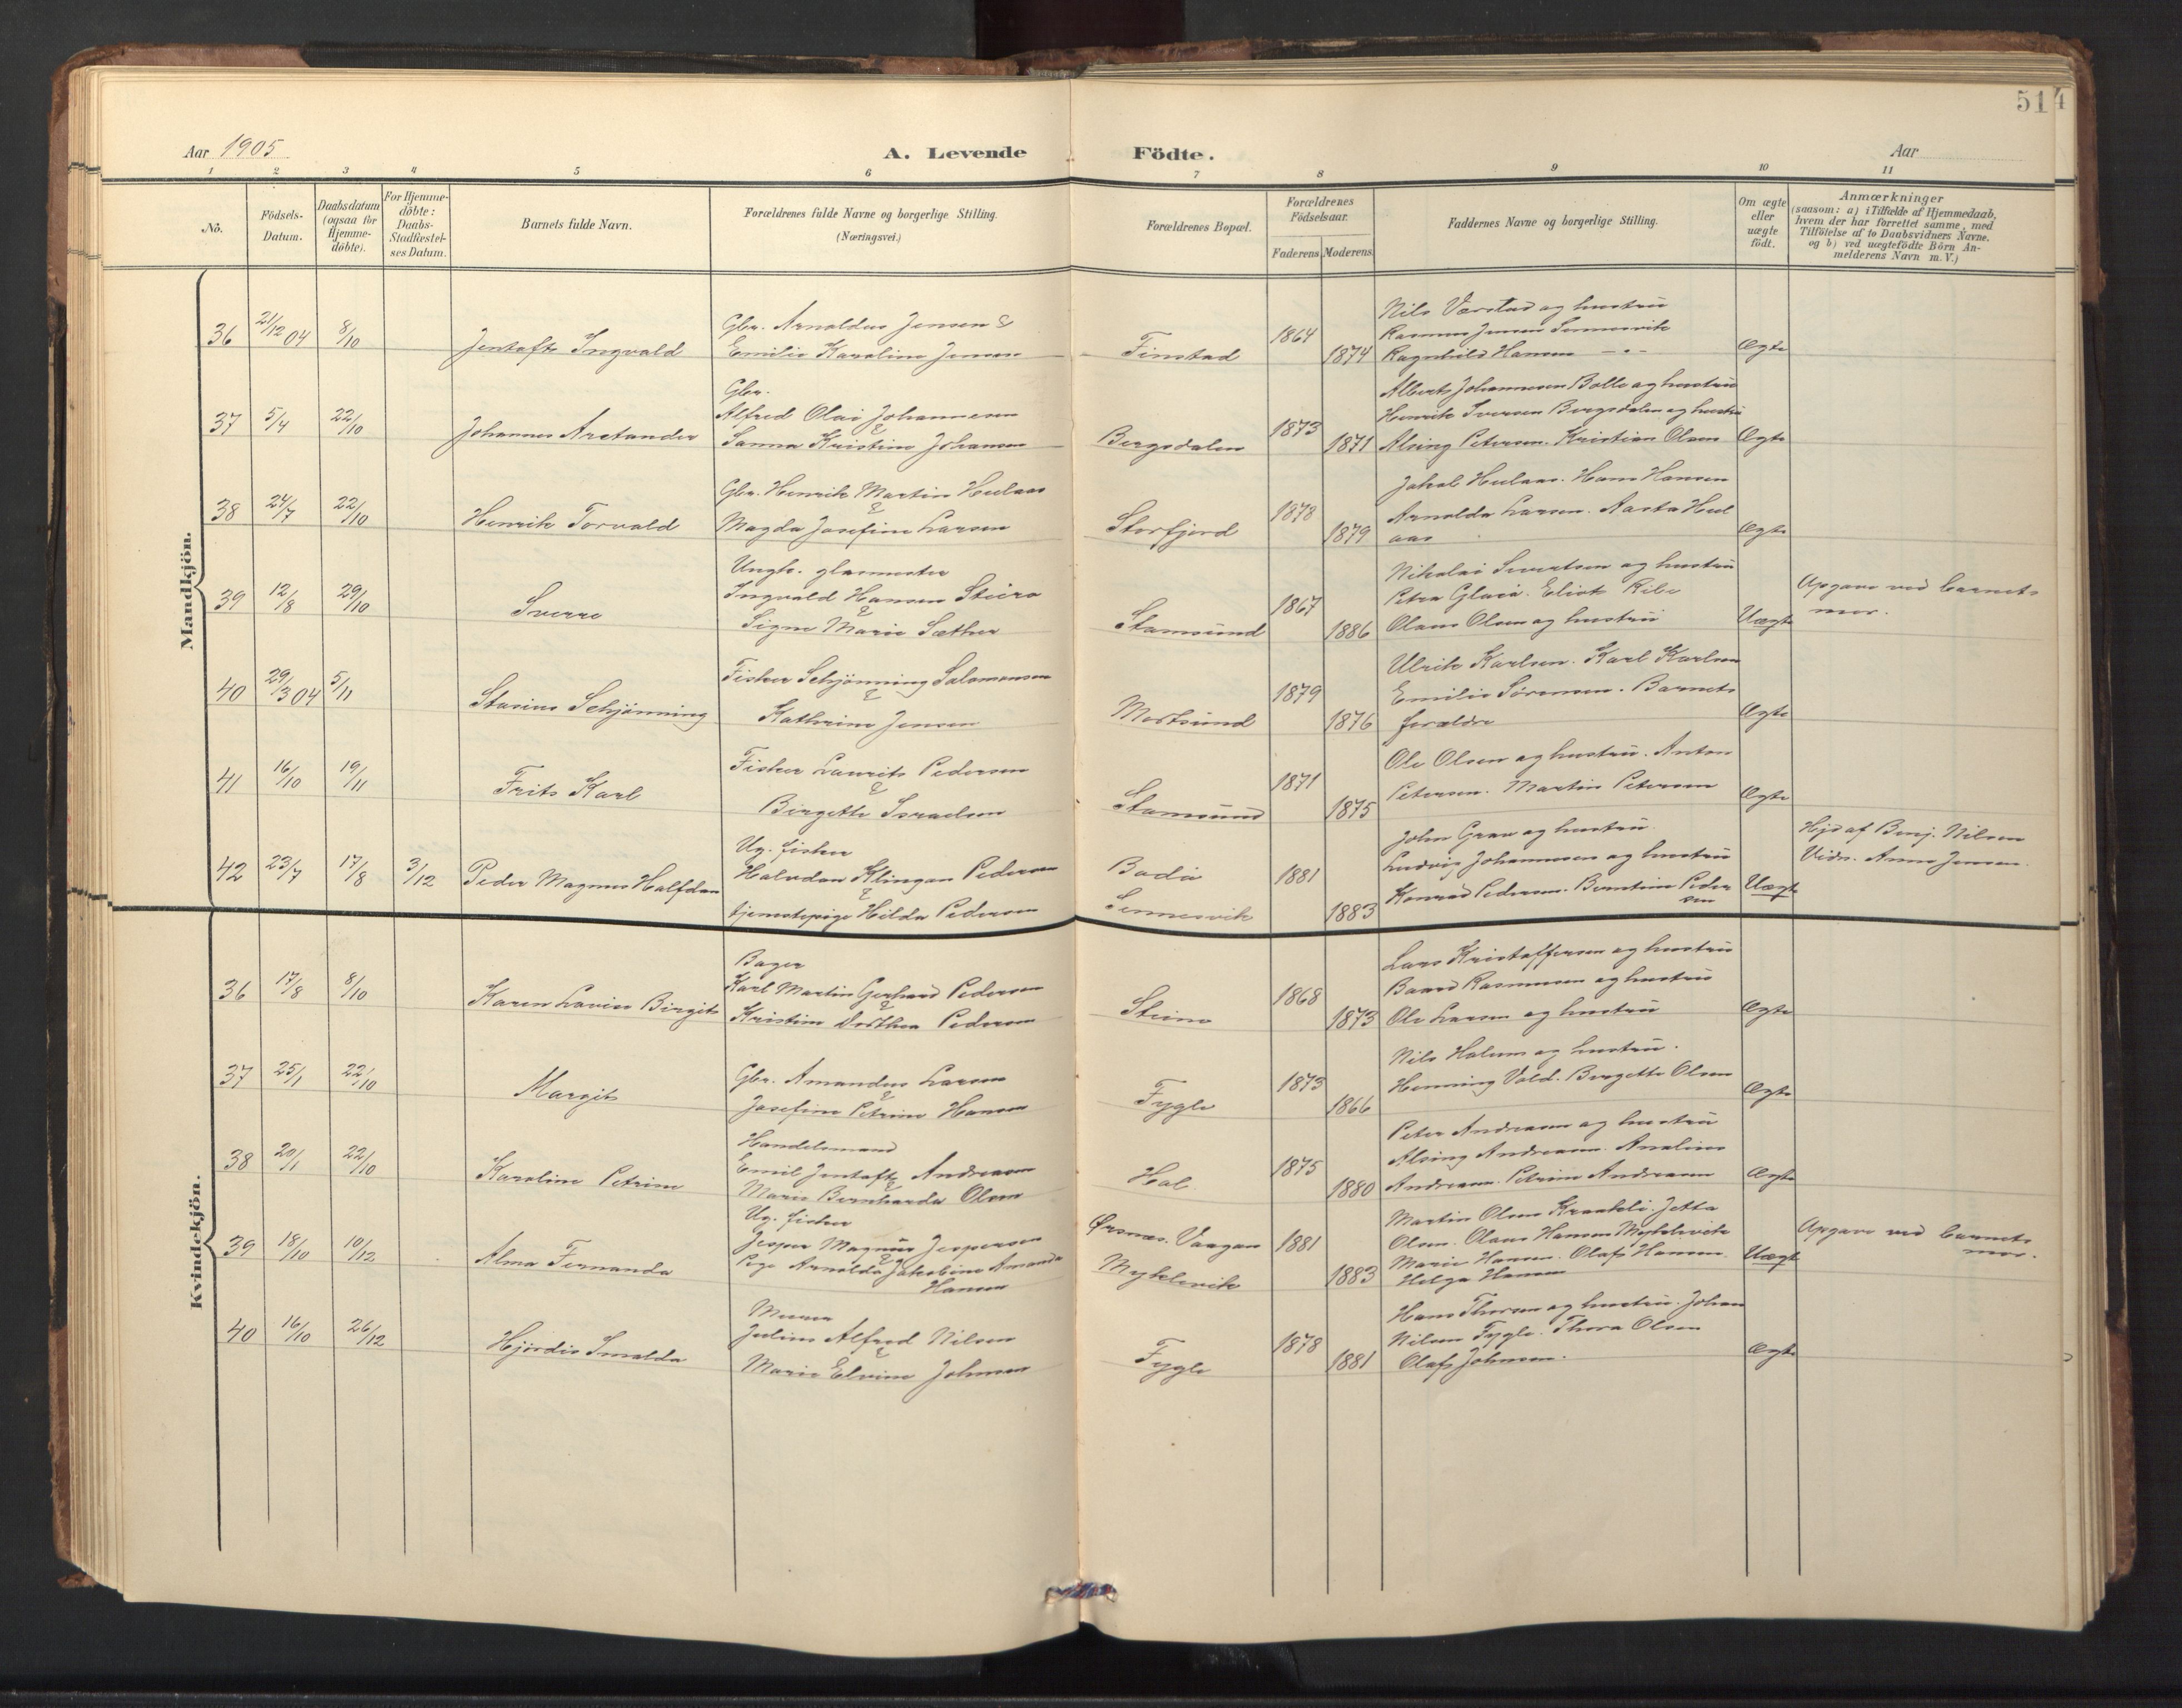 514
Aar 1905
A. Levende Födte.
Aar
1 2 3 4 5 6 7 8 9 10 11
Nö.
Födsels-
Datum.
Daabsdatum
(ogsaa for
Hjemme-
döbte).
For Hjemme-
döbte:
Daabs-
Stadfæstel-
ses Datum.
Barnets fulde Navn.
Forældrenes fulde Navne og borgerlige Stilling.
(Næringsvei.)
Forældrenes Bopæl.
Forældrenes
Födselsaar.
Faderens Moderens
Faddernes Navne og borgerlige Stilling.
Om ægte
eller
uægte
födt.
Anmærkninger
(saasom: a) i Tilfælde af Hjemmedaab,
hvem der har forrettet samme, med
Tilföielse af to Daabsvidners Navne,
og b) ved uægtefödte Börn An-
melderens Navn m. V.)
Mandkjön.
36 21/12 04 8/10
Jentoft Ingvald
Gbr. Arnoldus Jensen &
Emilie Karoline Jensen
Finstad
1864
1874
Nils Værstad og hustru
Rasmus Jensen Sennesvik
Ragnhild Hansen — " —
Ægte
37 5/4 22/10
Johannes Aretander
Gbr.
Alfred Olai Johannesen
&
Sanna Kristine Johansen
Bergsdalen
1873
1871
Albert Johannesen Bolle og hustru
Henrik Iversen Bergsdalen og hustru
Alsing Petersen. Kristian Olsen
Ægte
38 24/7 22/10
Henrik Torvald
Gbr. Henrik Martin Heulaas
&
Magda Josefine Larsen
Storfjord
1878
1879
Jakob Heulaas. Hans Hansen
Arnolda Larsen. Aasta Heul
aas
Ægte
39 12/8 29/10
Sverre
Ungk. glasmester
Ingvald Hansen Steiro
&
Signe Marie Sæther
Stamsund
1867
1886
Nikolai Sivertsen og hustru
Petra Glæia. Eliot Ribe
Olaus Olsen og hustru
Uægte
Opgave ved barnets
mor.
40 29/3 04 5/11
Stasius Schjönning
Fisker Schjönning Salomonsen
&
Kathrine Jensen
Mortsund
1879
1876
Ulrik Karlsen. Karl Karlsen
Emilie Sörensen. Barnets
forældre
Ægte
41 16/10 19/11
Frits Karl
Fisker Laurits Pedersen
&
Birgette Israelsen
Stamsund
1871
1875
Ole Olsen og hustru. Anton
Petersen. Martin Petersen
Ægte
42 23/7 17/8 3/12
Peder Magnus Halfdan
Ug. fisker
Halvdan Klingan Pedersen
&
tjenestepige Hilda Pedersen
Bodö
Sennesvik
1881
1883
John Grav og hustru.
Ludvig Johannesen og hustru
Konrad Pedersen. Berntine Peder
sen
Uægte
Hjd af Benj. Nilsen
Vidn. Anne Jensen.
Kvindekjön.
36 17/8 8/10
Karen Lovise Birgit
Bager
Karl Martin Gerhard Pedersen
&
Kristine Dorthea Pedersen
Steine
1868
1873
Lars Kristoffersen og hustru
Baard Rasmussen og hustru
Ole Larsen og hustru
Ægte
37 25/1 22/10
Margit
Gbr. Amandus Larsen
&
Josefine Petrine Hansen
Fygle
1873
1866
Nils Holum og hustru.
Henning Vold. Bergette Olsen
Ægte
38 20/1 22/10
Karoline Petrine
Handelsmand
Emil Jentoft Andreasen
&
Marie Bernharda Olsen
Hol.
1875
1880
Peter Andreasen og hustru
Alsing Andreasen. Analine
Andreasen. Petrine Andreasen
Ægte
39 18/10 10/12
Alma Fernanda
Ug. fisker
Jesper Magnus Jespersen
&
Pige Arnolda Jakobine Amanda
Hansen
Ørsnes. Vaagan
Myklevik
1881
1883
Martin Olsen Kraakli. Jetta
Olsen. Olaus Hansen Myklevik
Marie Hansen. Olaf Hansen.
Helga Hansen
Uægte
Opgave ved barnets
mor.
40 16/10 26/12
Hjördis Imalda
Murer
Julius Alfred Nilsen
&
Marie Elvine Johnsen
Fygle
1878
1881
Hans Thorsen og hustru. Johan
Nilsen Fygle. Thora Olsen
Olaf Johnsen.
Ægte